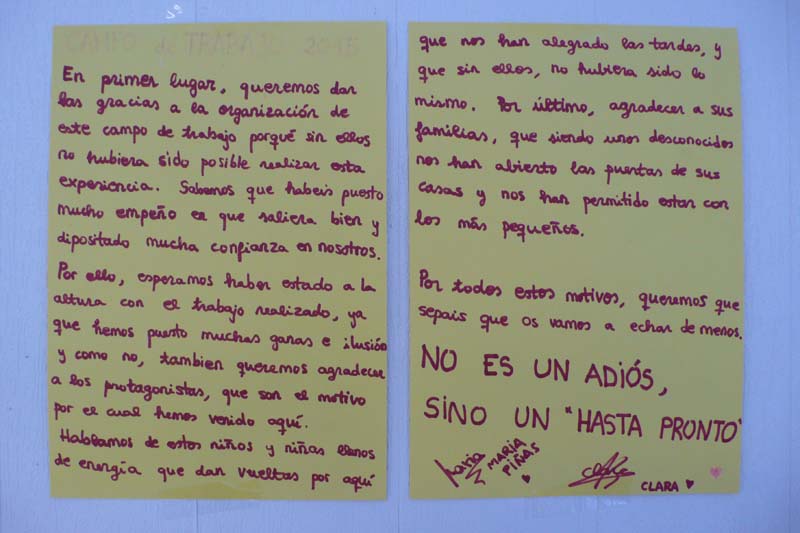 CAMPO de TRABAJO 2015
En primer lugar, queremos dar
las gracias a la organización de
este campo de trabajo porqué sin ellos
no hubiera sido posible realizar esta
experiencia. Sabemos que habeis puesto
mucho empeño en que saliera bien y
dipositado mucha confianza en nosotros.
Por ello, esperamos haber estado a la
altura con el trabajo realizado, ya
que hemos puesto muchas ganas e ilusión
y como no, tambien queremos agradecer
a los protagonistas, que son el motivo
por el cual hemos venido aquí.
Hablamos de estos niños y niñas llenos
de energía que dan vueltas por aquí
que nos han alegrado las tardes, y
que sin ellos, no hubiera sido lo
mismo. Por último, agradecer a sus
familias, que siendo unos desconocidos
nos han abierto las puertas de sus
casas y nos han permitido estar con
los más pequeños.
Por todos estos motivos, queremos que
sepais que os vamos a echar de menos.
NO ES UN ADIÓS,
SINO UN "HASTA PRONTO"
Maria MARIA
PIÑAS
CLARA